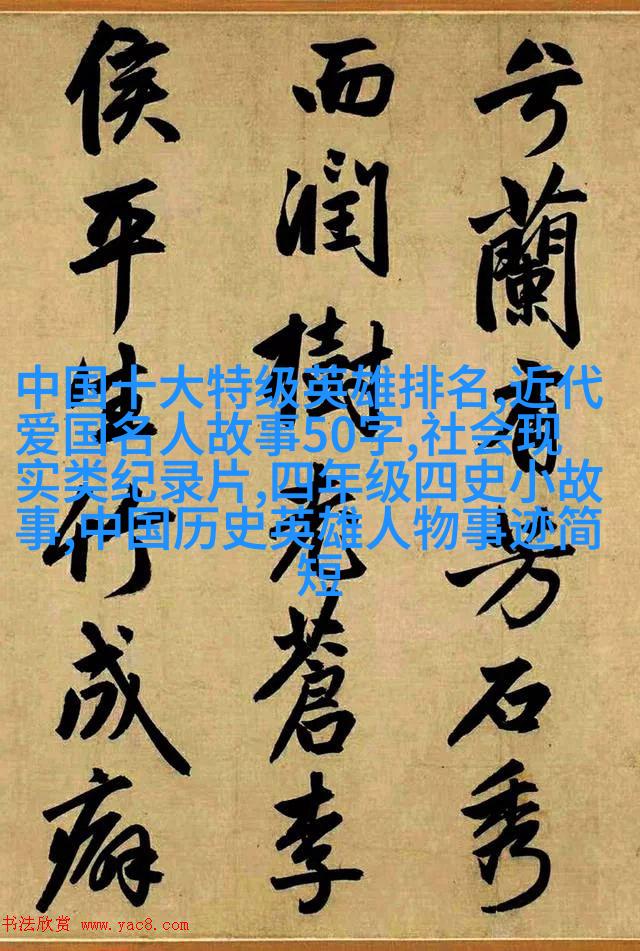 兮蘭有芳石秀
而潤樹老蒼李
侯平生竹成癖
中国十大特级英雄排名,近代
爱国名人故事50字,社会现
实类纪录片,四年级四史小故
事,中国历史英雄人物事迹简
短
书法欣赏 www.yac8.com